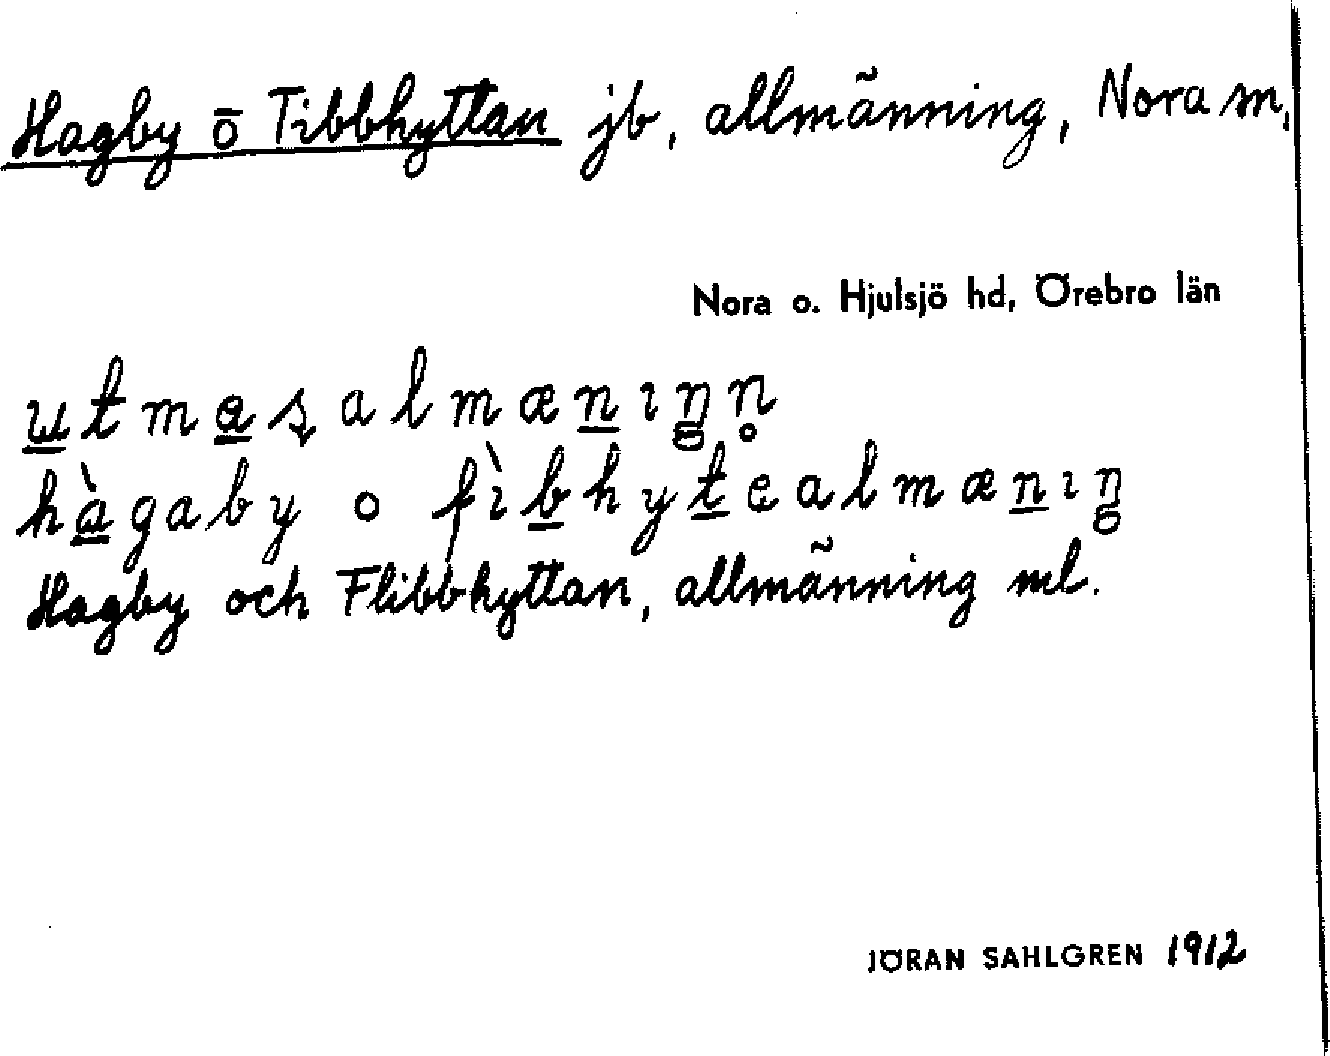 Hagby o Tibbhyttan jb, allmänning, Nora m,
Nora o. Hjulsjö hd, Örebro län
utmasalmænıŋn̥
hàgaby o fìbhytealmænıŋ
Hagby och Flibbhyttan, allmänning ml.
JÖRAN SAHLGREN 1912